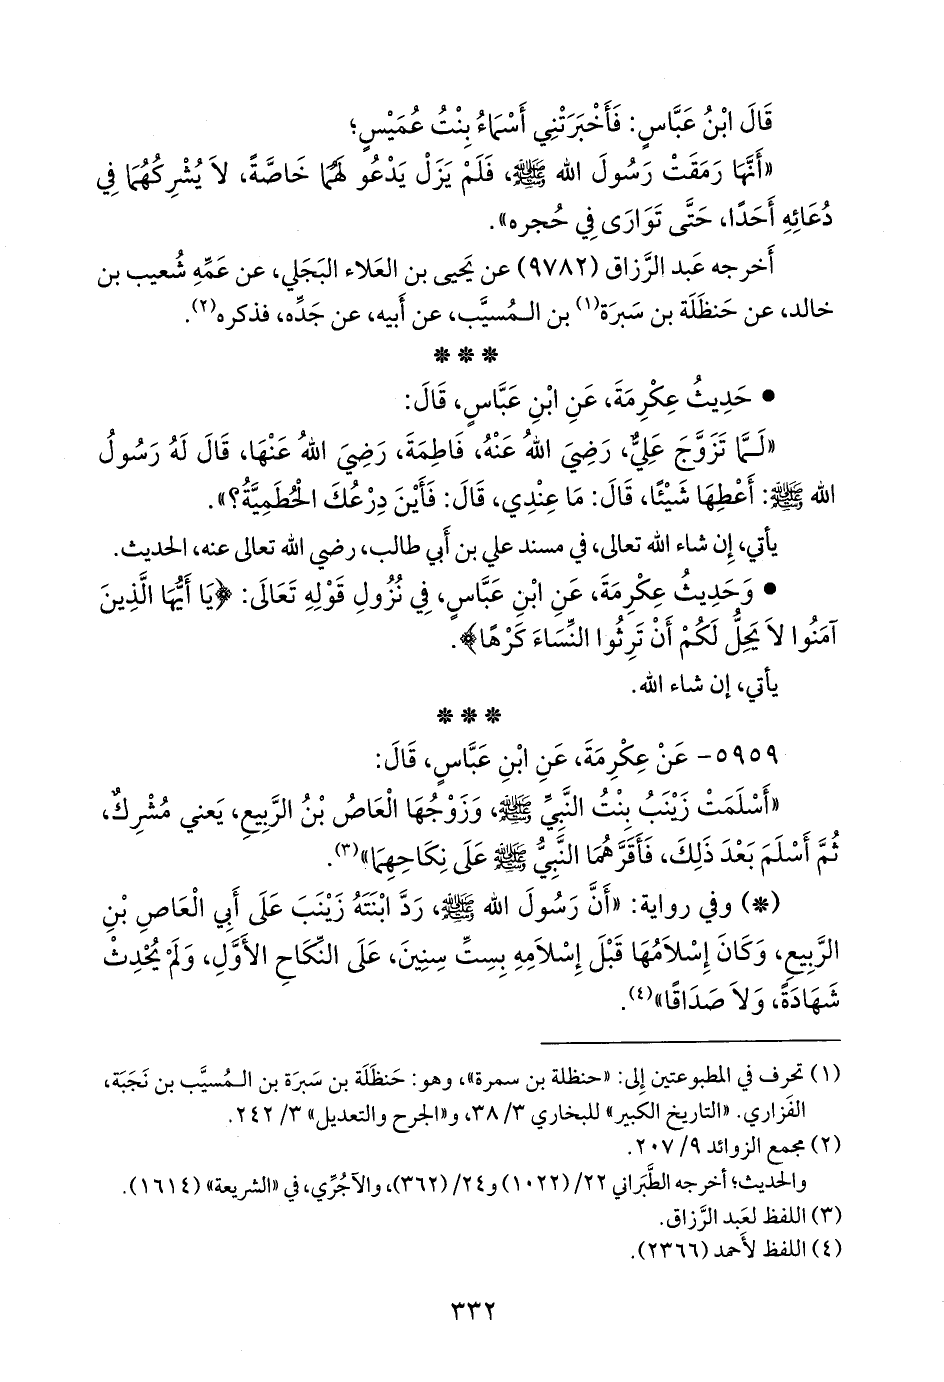 قَالَ ابْنُ عَبَّاسٍ: فَأَخْبَرَتْنِي أَسْمَاءُ بِنْتُ عُمَيْسٍ؛
«أَنَّهَا رَمَقَتْ رَسُولَ الله ﷺ، فَلَمْ يَزَلْ يَدْعُو لَهُمَا خَاصَّةً، لاَ يُشْرِكُهُمَا فِي
دُعَائِهِ أَحَدًا، حَتَّى تَوَارَى فِي حُجرِه».
أَخرجه عَبد الرَّزاق (٩٧٨٢) عن يَحيى بن العَلاء البَجَلي، عن عَمِّه شُعيب بن
خالد، عن حَنظَلَة بن سَبرَة(١) بن الـمُسيَّب، عن أَبيه، عن جَدِّه، فذكره(٢).
* * *
• حَدِيثُ عِكْرِمَةَ، عَنِ ابْنِ عَبَّاسٍ، قَالَ:
«لَـمَّا تَزَوَّجَ عَلِيٌّ، رَضِيَ اللهُ عَنْهُ، فَاطِمَةَ، رَضِيَ اللهُ عَنْهَا، قَالَ لَهُ رَسُولُ
الله ﷺ: أَعْطِهَا شَيْئًا، قَالَ: مَا عِنْدِي، قَالَ: فَأَيْنَ دِرْعُكَ الْحُطَمِيَّةُ؟».
يأتي، إِن شاء الله تعالى، في مسند علي بن أَبي طالب، رضي الله تعالى عنه، الحديث.
• وَحَدِيثُ عِكْرِمَةَ، عَنِ ابْنِ عَبَّاسٍ، فِي نُزُولِ قَوْلِهِ تَعَالَى: ﴿يَا أَيُّهَا الَّذِينَ
آمَنُوا لاَ يَحِلُّ لَكُمْ أَنْ تَرِثُوا النِّسَاءَ كَرْهًا﴾.
يأتي، إن شاء الله.
* * *
٥٩٥٩- عَنْ عِكْرِمَةَ، عَنِ ابْنِ عَبَّاسٍ، قَالَ:
«أَسْلَمَتْ زَيْنَبُ بِنْتُ النَّبِيِّ ﷺ، وَزَوْجُهَا الْعَاصُ بْنُ الرَّبِيعِ، يَعنِي مُشْرِكٌ،
ثُمَّ أَسْلَمَ بَعْدَ ذَلِكَ، فَأَقَرَّهُمَا النَّبِيُّ ﷺ عَلَى نِكَاحِهِمَا»(٣).
(*) وفي رواية: «أَنَّ رَسُولَ الله ﷺ، رَدَّ ابْنَتَهُ زَيْنَبَ عَلَى أَبِي الْعَاصِ بْنِ
الرَّبِيعِ، وَكَانَ إِسْلاَمُهَا قَبْلَ إِسْلاَمِهِ بِسِتِّ سِنِينَ، عَلَى النِّكَاحِ الأَوَّلِ، وَلَمْ يُحْدِثْ
شَهَادَةً، وَلاَ صَدَاقًا»(٤).
(١) تحرف في المطبوعتين إِلى: «حنظلة بن سمرة»، وهو: حَنظَلَة بن سَبرَة بن الـمُسيَّب بن نَجَبَة،
الفَزاري. «التاريخ الكبير» للبخاري ٣/ ٣٨، و«الجرح والتعديل» ٣/ ٢٤٢.
(٢) مجمع الزوائد ٩/ ٢٠٧.
والحديث؛ أخرجه الطَّبَراني ٢٢/ (١٠٢٢) و٢٤/ (٣٦٢)، والآجُرِّي، في «الشريعة» (١٦١٤).
(٣) اللفظ لعَبد الرَّزاق.
(٤) اللفظ لأَحمد (٢٣٦٦).
٣٣٢